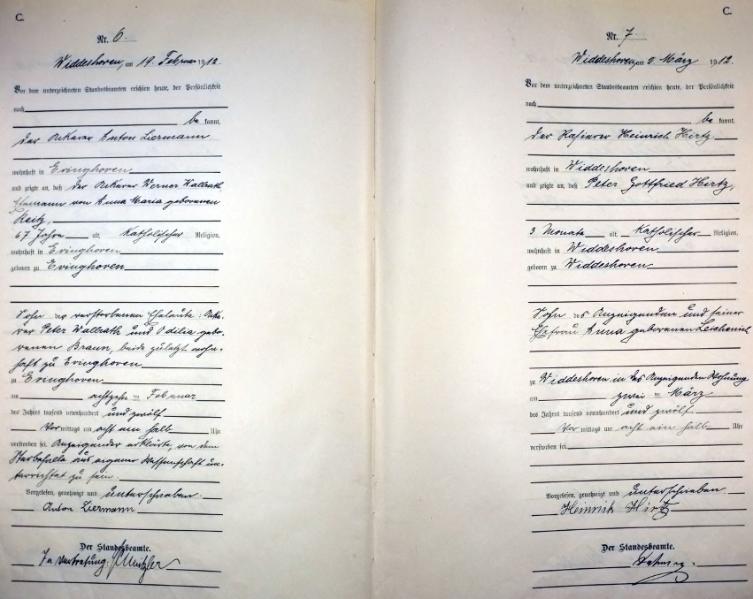 C.
Nr. 6
Widdeshoven, am 19. Februar 1912.
Vor dem unterzeichneten Standesbeamten erschien heute, der Persönlichkeit
nach
be kannt,
der Ackerer Anton Liermann
wohnhaft in Evinghoven
und zeigte an, daß der Ackerer Werner Wallrath
Ehemann von Anna Maria geborenen
Reitz,
67 Jahre alt, Katholischer Religion,
wohnhaft in Evinghoven
geboren zu Evinghoven
Sohn der verstorbenen Eheleute: Acke-
rer Peter Wallrath und Odilia gebo-
renen Braun, beide zuletzt wohn-
haft zu Evinghoven
zu Evinghoven
am achtzehn = Februar
des Jahres tausend neunhundert und zwölf
Vor mittags um acht ein halb Uhr
verstorben sei. Anzeigender erklärte, von dem
Sterbefalle aus eigener Wissenschaft un-
terrichtet zu sein.
Vorgelesen, genehmigt und unterschrieben
Anton Liermann
Der Standesbeamte.
In Vertretung:
C.
Nr. 7
Widdeshoven, am 2. März 1912.
Vor dem unterzeichneten Standesbeamten erschien heute, der Persönlichkeit
nach
be kannt,
der Heinrich Hirtz
wohnhaft in Widdeshoven
und zeigte an, daß Peter Gottfried Hirtz,
3 Monate alt, Katholischer Religion,
wohnhaft in Widdeshoven
geboren zu Widdeshoven
Sohn des Anzeigenden und seiner
Ehefrau Anna geborenen
zu Widdeshoven in des Anzeigenden Wohnung
am zwei = März
des Jahres tausend neunhundert und zwölf
Vor mittags um acht ein halb Uhr
verstorben sei
Vorgelesen, genehmigt und unterschrieben
Heinrich Hirtz
Der Standesbeamte.